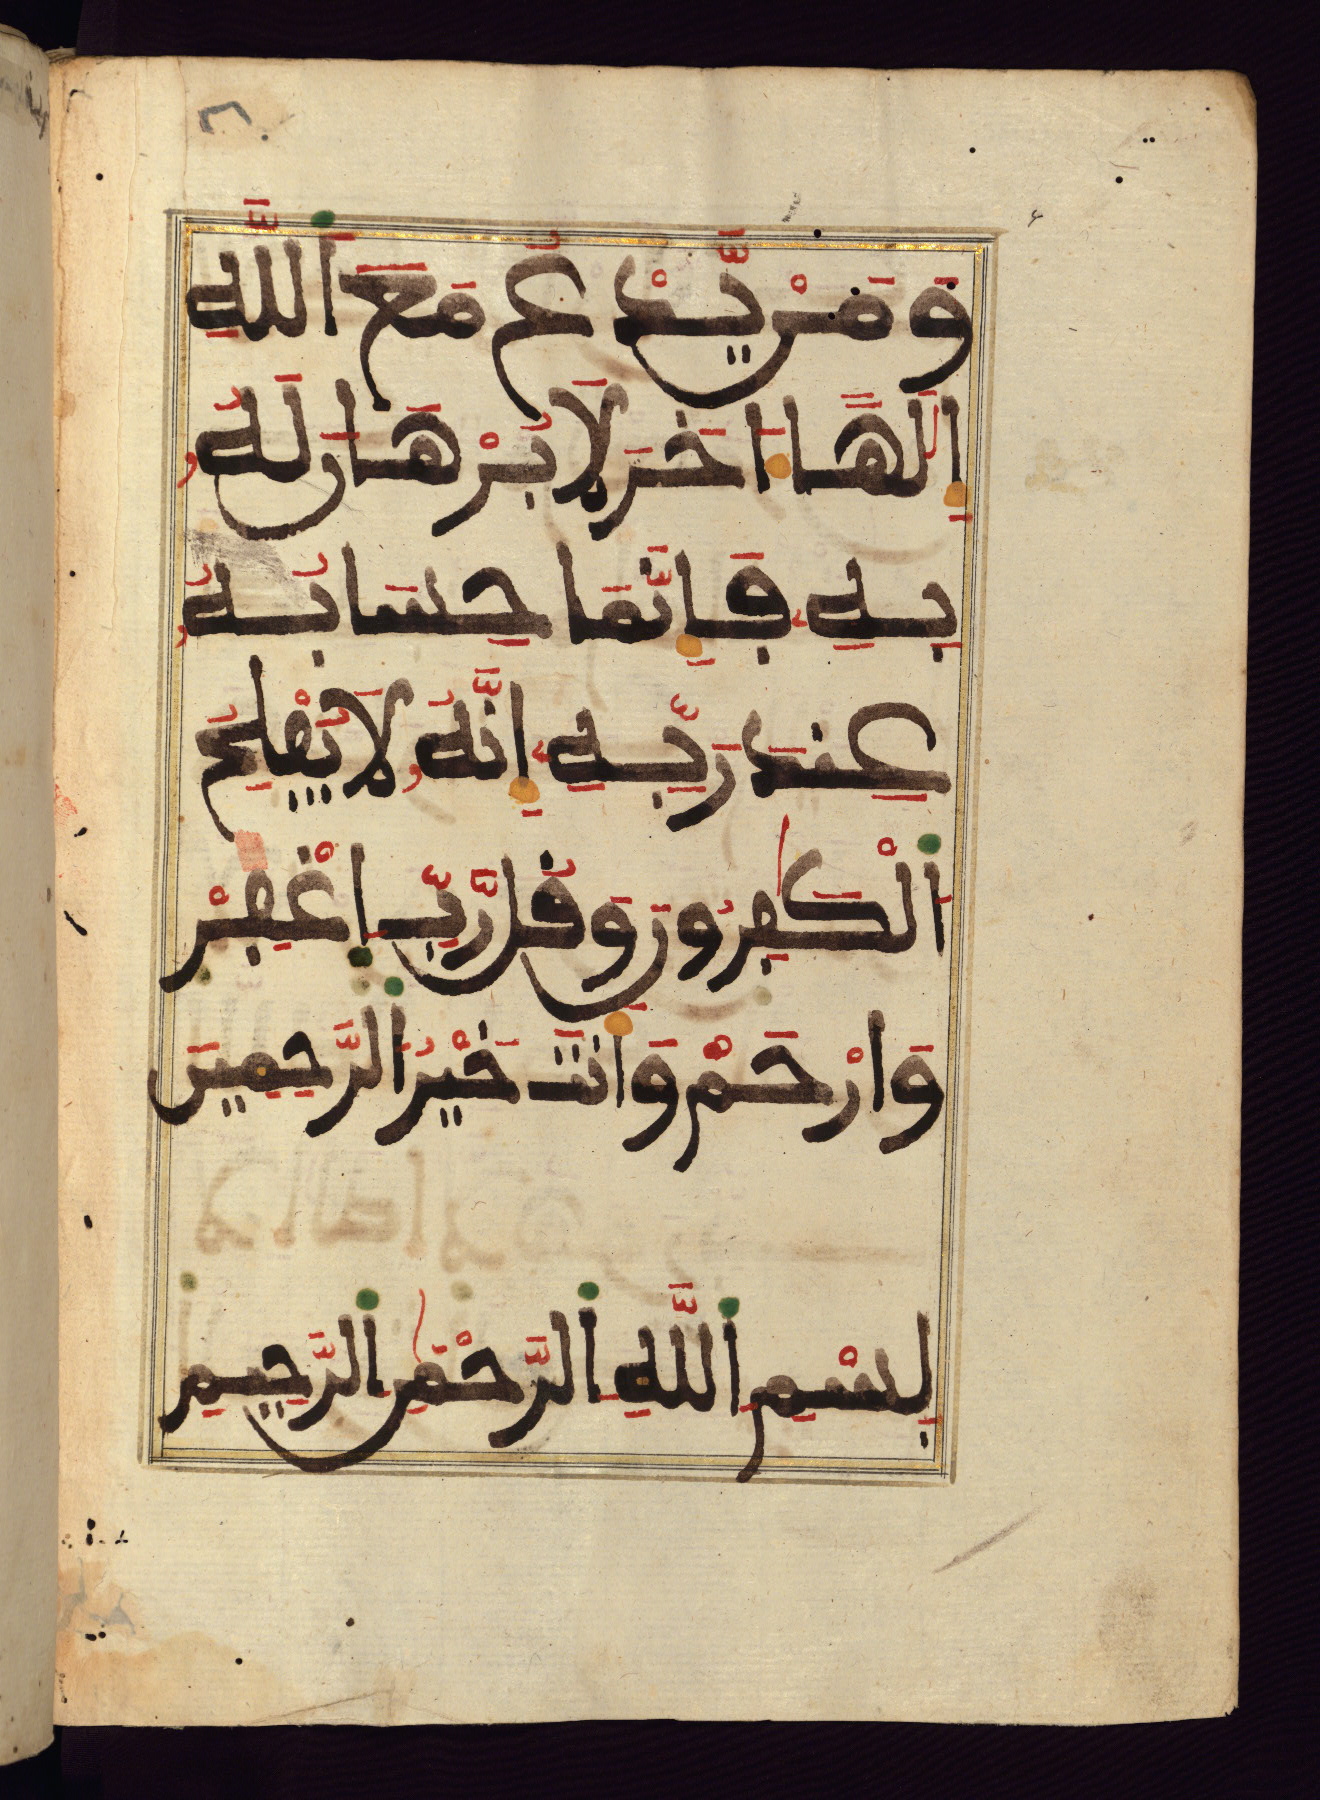 وَمَنْ يَّدْعُ مَعَ اَللَّهِ
إِلَٰهًا اخَرَ لَا بُرْهَانَ لَهُ
بِهِ فَإِنَّمَا حِسَابُهُ
عِندَ رَبِّهِ إِنَّهُ لَا يُفْلِحُ
اُلْكَٰفِرُونَ وَقُل رَّبِّ اِغْفِرْ
وَارْحَمْ وَأَنتَ خَيْرُ اُلرَّحِمِينَ
بِسْمِ اِللَّهِ اِلرَّحْمَٰنِ اِلرَّحِيمِ